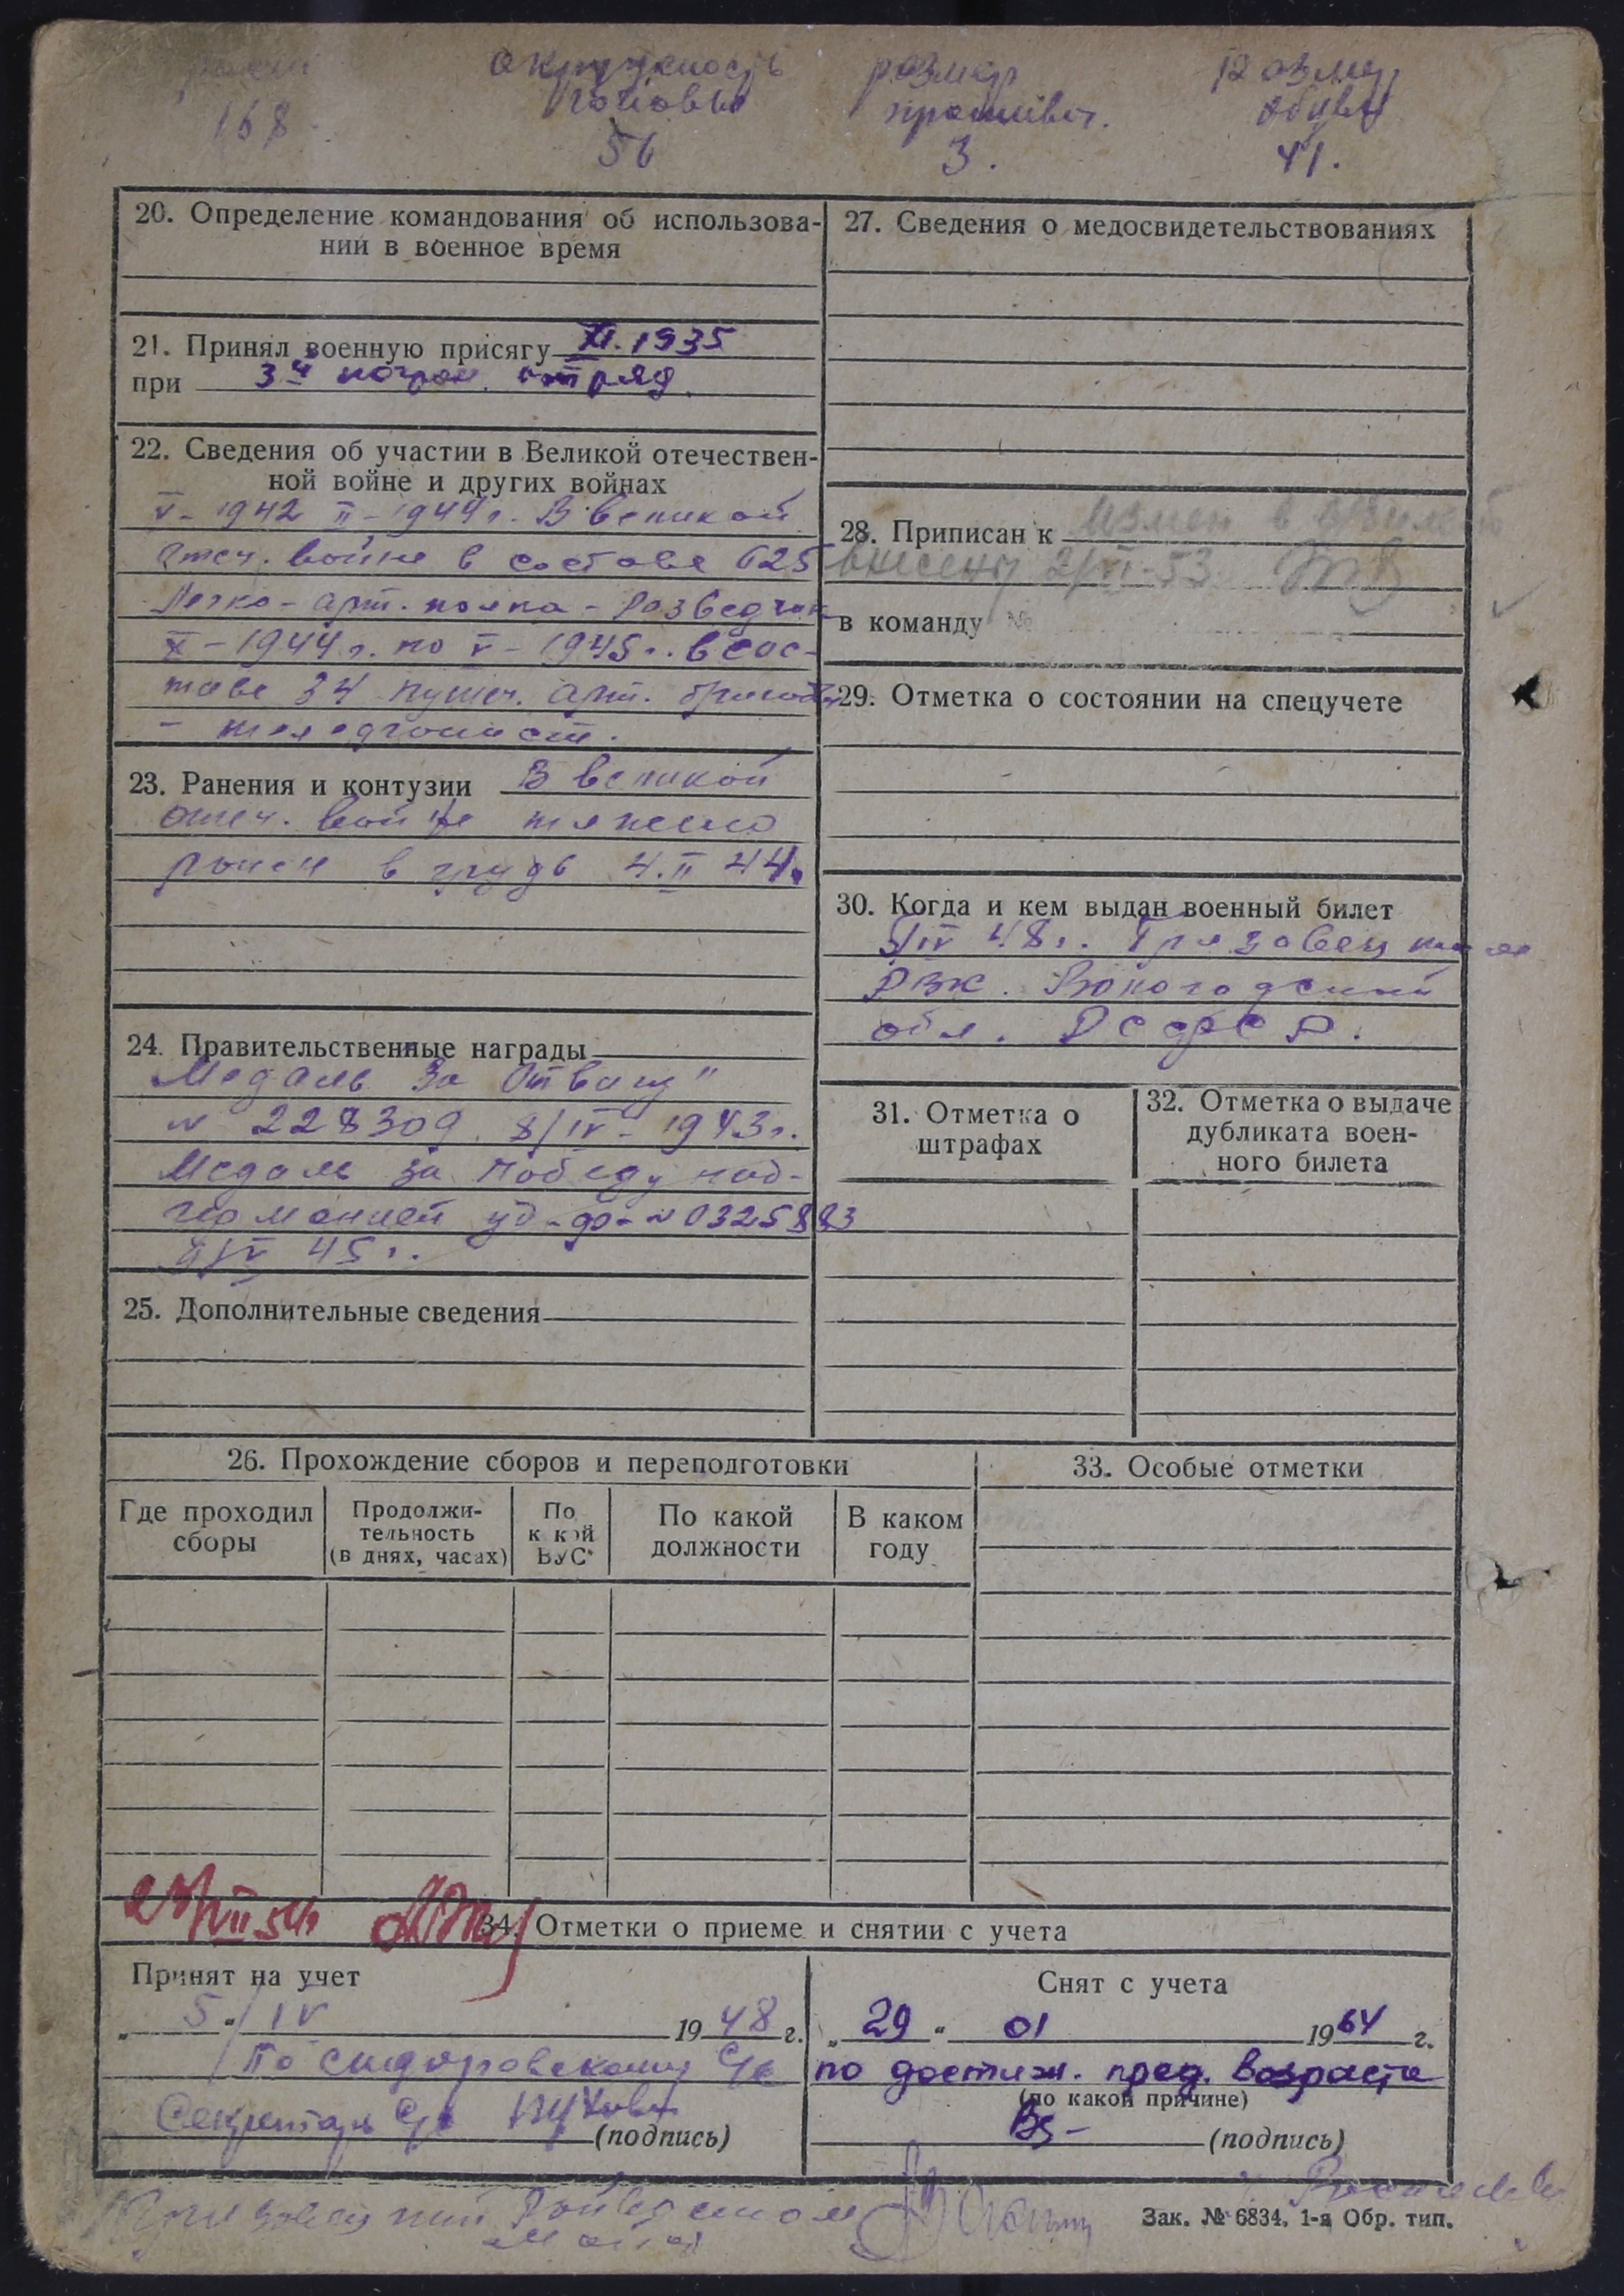 рост окружность размер размер
головы противог. обуви
168 56 3. 41.
20. Определение командования об использова-
нии в военное время
21. Принял военную присягу XI. 1935
при 3й погран. отряд.
22. Сведения об участии в Великой отечествен-
ной войне и других войнах
V - 1942 II - 1944 г. В великой
отеч. войне в составе 625
Легко - арт. полка - Разведчик
X - 1944 г. по V - 1945 г. в сос-
таве 34 пушеч. арт. бригады
- телефонист.
23. Ранения и контузии В великой
отеч. войне тяжело
ранен в грудь 4. II 44.
24. Правительственные награды
Медаль За Отвагу"
N 228309 8/IV - 1943 г.
Медаль за Победу над-
германией уд-
9/V 45 г.
25. Дополнительные сведения
27. Сведения о медосвидетельствованиях
28. Приписан к
внесены 2/VI-53
в команду №
29. Отметка о состоянии на спецучете
30. Когда и кем выдан военный билет
IV 48 г. Грязовецким
РВК. Вологодской
обл. РСФСР.
31. Отметка о
штрафах
32. Отметка о выдаче
дубликата воен-
ного билета
26. Прохождение сборов и переподготовки
Где проходил
сборы
Продолжи-
тельность
(в днях, часах)
По
какой
ВУС
По какой
должности
В каком
году
33. Особые отметки
34. Отметки о приеме и снятии с учета
Принят на учет
„ 5 “ IV 1948 г.
По Сидоровскому С/с
Секретарь С/с
(подпись)
Снят с учета
„ 29 “ 01 1964 г.
по достиж. пред. возраста
(по какой причине)
(подпись)
Грязовецкий Райвоенком
Зак. № 6834. 1-я Обр. тип.